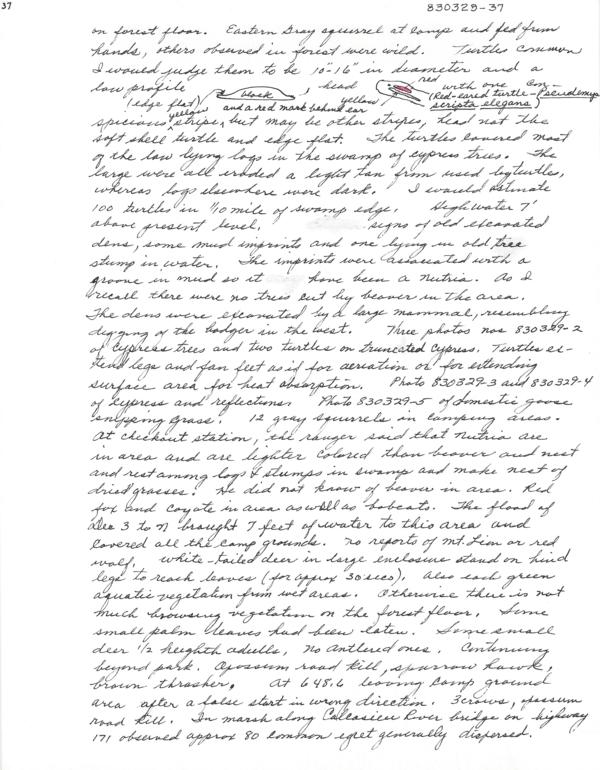 37
830329-37
on forest floor. Eastern Gray squirrel at camp and fed from
hands, others observed in forest were wild. Turtles common
I would judge them to be 10"-16" in diameter and a
low profile black, head red yellow with one con-
(edge flat) (Red-eared turtle - Pseudemys
scripta elegans)
spicious yellow stripe, and a red mark behind ear but may be other stripes, head not the
soft shell turtle and edge flat. The turtles covered most
of the low lying logs in the swamp of cypress trees. The
large were all eroded a light tan from used by turtles,
whereas logs elsewhere were dark. I would estimate
100 turtles in 1/10 mile of swamp edge. High water 7'
above present level. signs of old excavated
dens, some mud imprints and one lying in old tree
stump in water. The imprints were associated with a
groove in mud so it have been a nutria. As I
recall there were no trees cut by beaver in the area.
The dens were excavated by a large mammal, resembling
digging of the badger in the west. Three photos nos 830329-2
of cypress trees and two turtles on truncated cypress. Turtles ex-
tend legs and fan feet as if for aeration or for extending
surface area for heat absorption. Photo 830329-3 and 830329-4
of cypress and reflections. Photo 830329-5 of domestic goose
snipping grass. 12 gray squirrels in camping areas.
At checkout station, the ranger said that nutria are
in area and are lighter colored than beaver and nest
and rest among logs & stumps in swamp and make nest of
dried grasses. He did not know of beaver in area. Red
fox and coyote in area as well as bobcats. The flood of
Dec 3 to 7 brought 7 feet of water to this area and
covered all the camp grounds. No reports of Mt. Lion or red
wolf. White-tailed deer in large enclosure stand on hind
legs to reach leaves (for approx 30 secs). Also each green
aquatic vegetation from wet areas. Otherwise there is not
much browsing vegetation on the forest floor. Some
small palm leaves had been eaten. Some small
deer 1/2 heighth adults, no antlered ones. Continuing
beyond park. Opossum road kill, sparrow hawk,
brown thrasher. At 648.6 leaving camp ground
area after a false start in wrong direction. 3 crows, opossum
road kill. In marsh along Calcasieu River bridge on highway
171 observed approx 80 common egret generally dispersed.